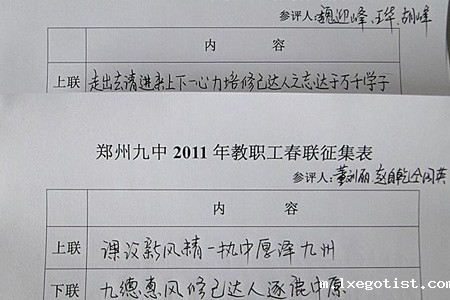 参评人:魏迎峰、王华、胡峰
内 容
上联 走出去请进来上下一心力培修己达人之志达于万千学子
郑州九中 2011 年教职工春联征集表
参评人:董刘丽、赵自乾、仝闰英
内 容
上联 课改新风精一执中厚泽九州
下联 九德惠风修己达人逐鹿中原
m.lxegotist.com